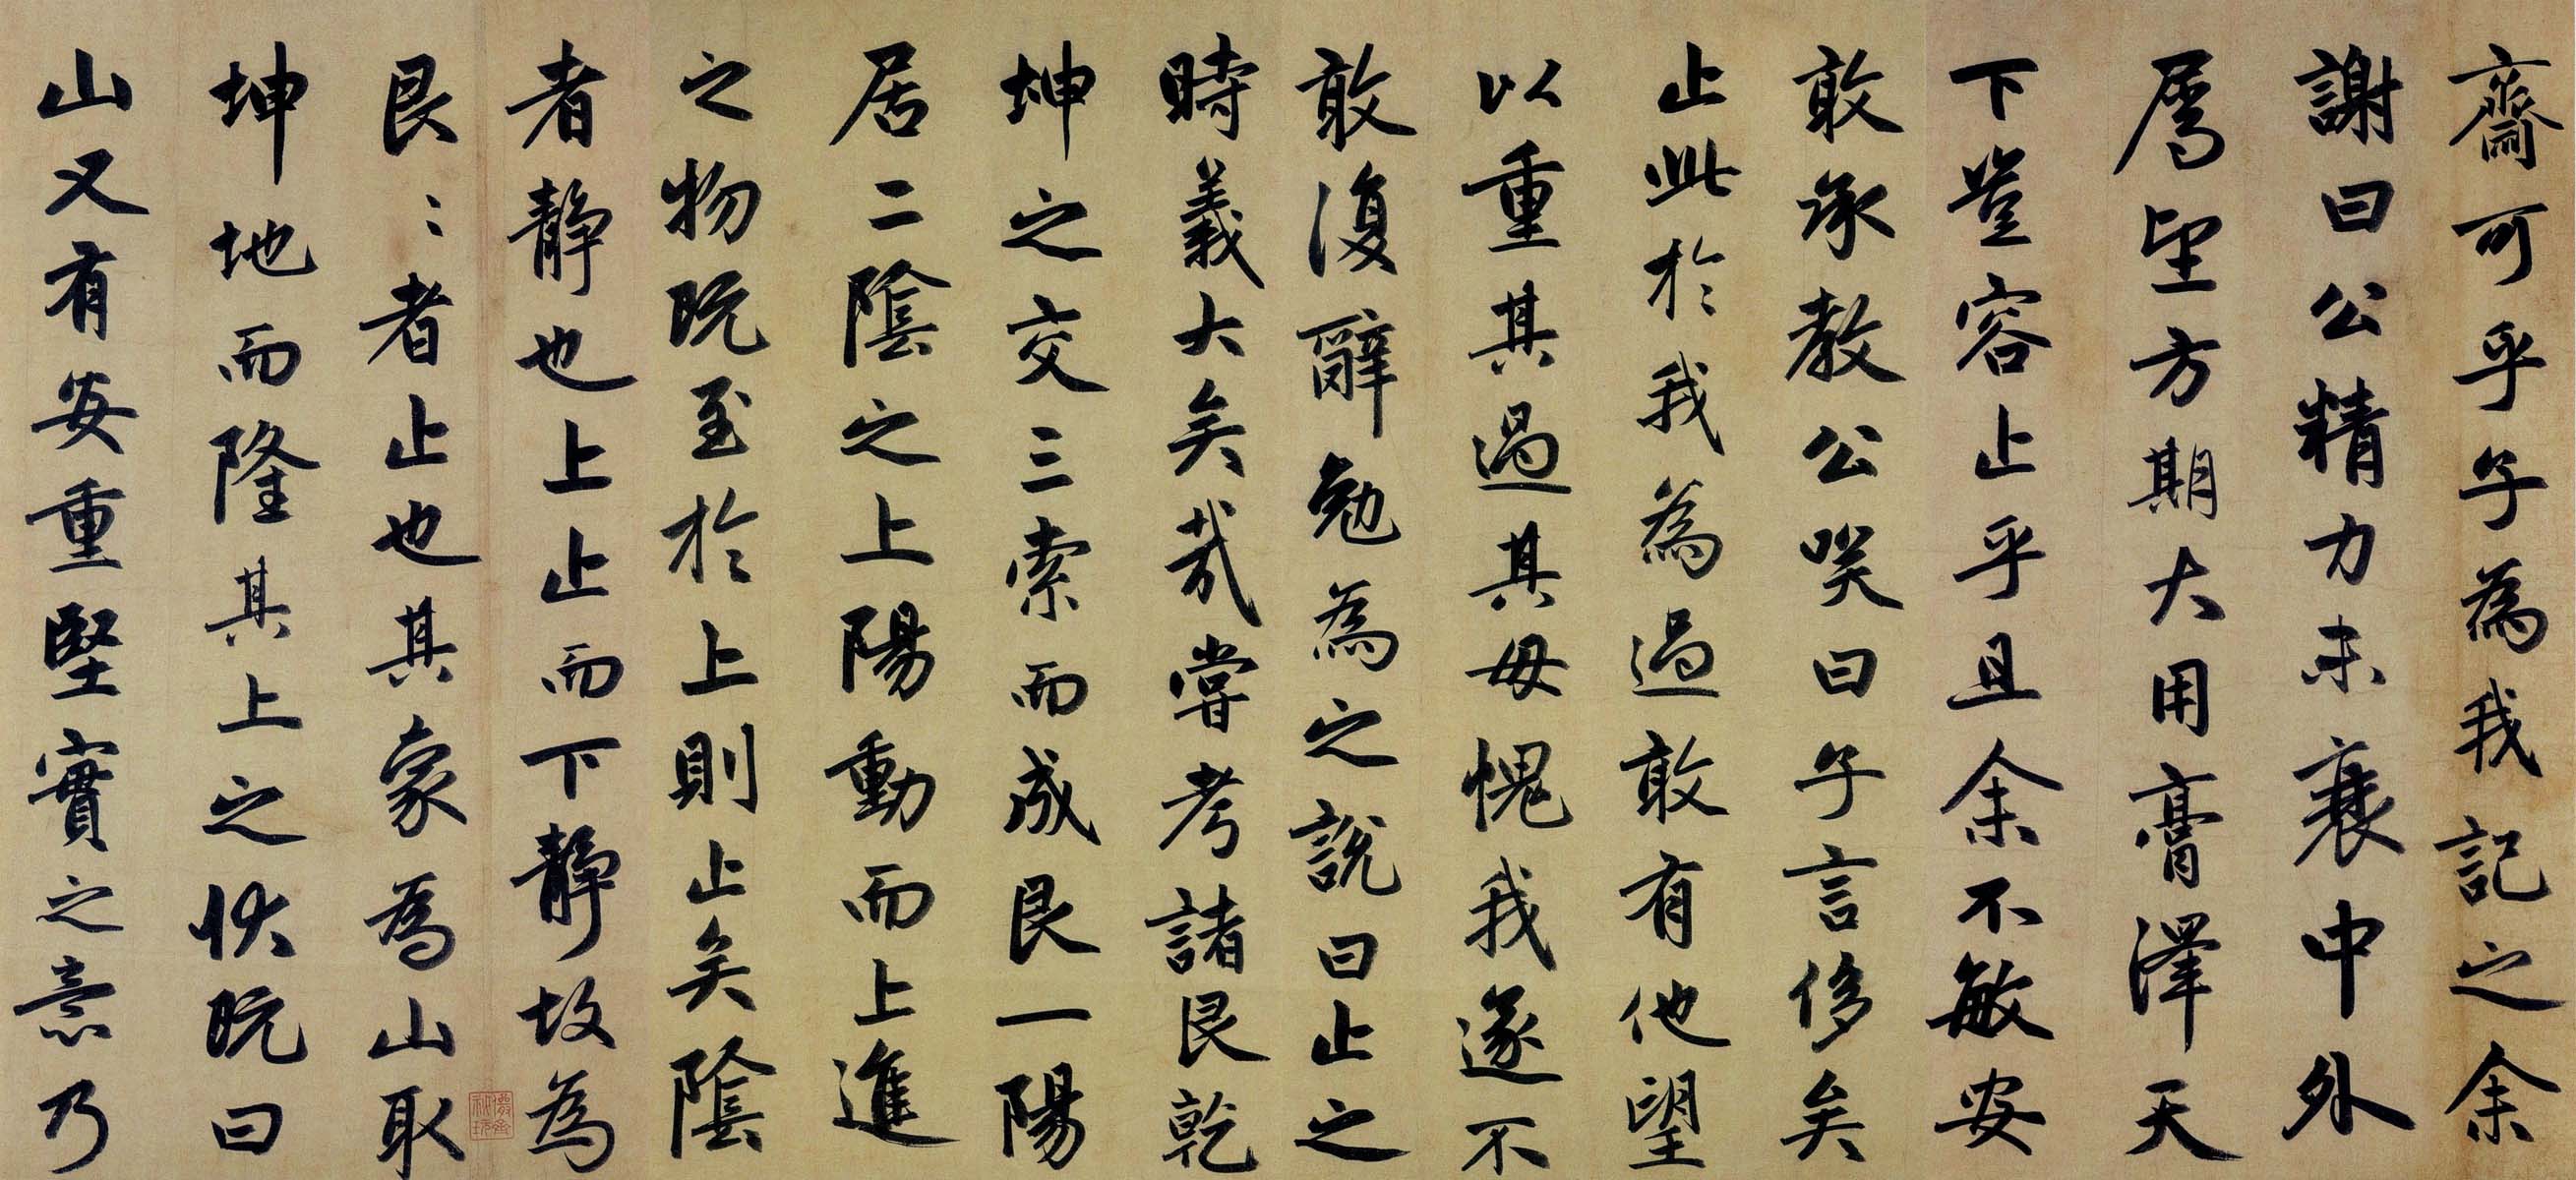 齋可乎子為我記之余
謝曰公精力未衰中外
屬望方期大用膏澤天
下豈容止乎且余不敏安
敢承教公笑曰子言侈矣
止此於我為過敢有他望
以重其過其毋愧我遂不
敢復辭勉為之說曰止之
時義大矣哉嘗考諸艮乾
坤之交三索而成艮一陽
居二陰之上陽動而上進
之物既至於上則止矣陰
者靜也上止而下靜故為
艮〻者止也其象為山取
坤地而隆其上之狀既曰
山又有安重堅實之意乃